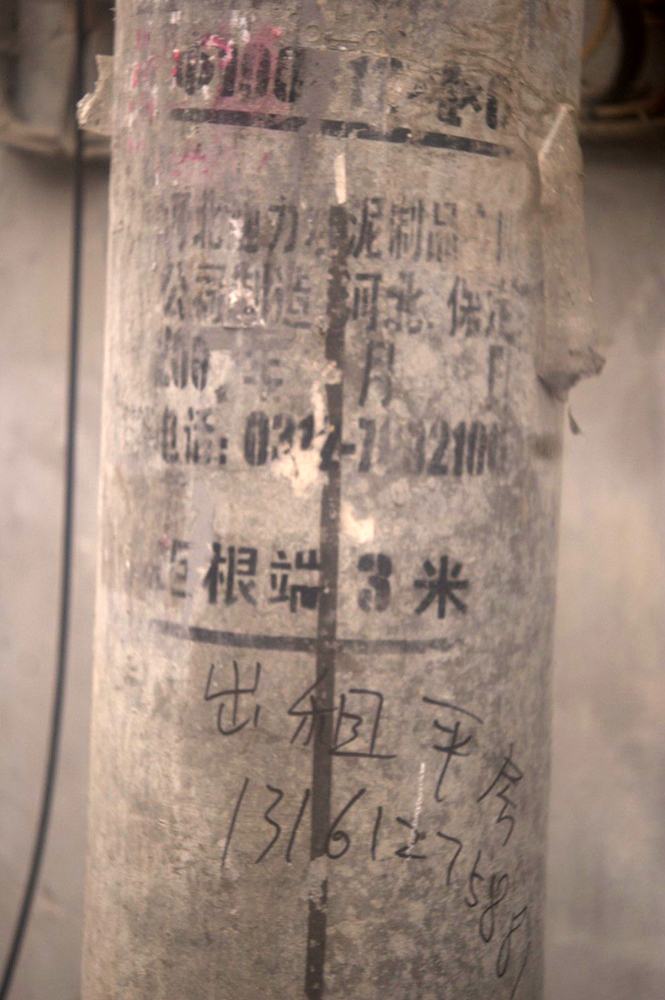 河北电力水泥制品
公司制造 河北 保定
200 年 月 日
电话: 0312-7 32100
距根端 3 米
出租平房
13161275887